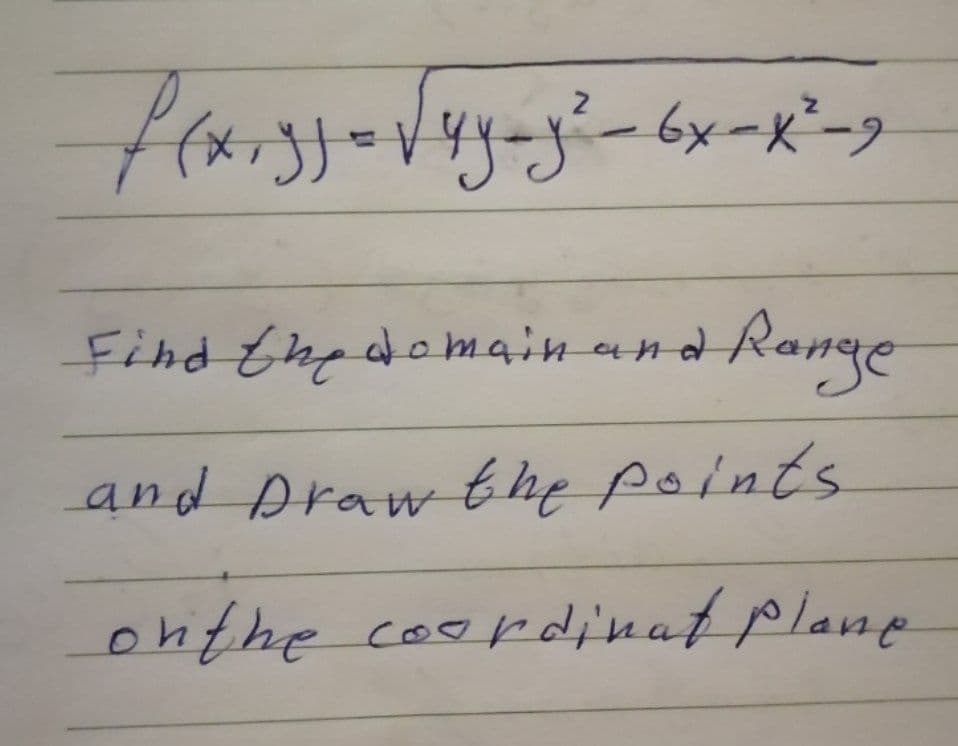 f(x,y) = √4y-y²-6x-x²-9
Find the domain and Range
and Draw the points
on the coordinat plane